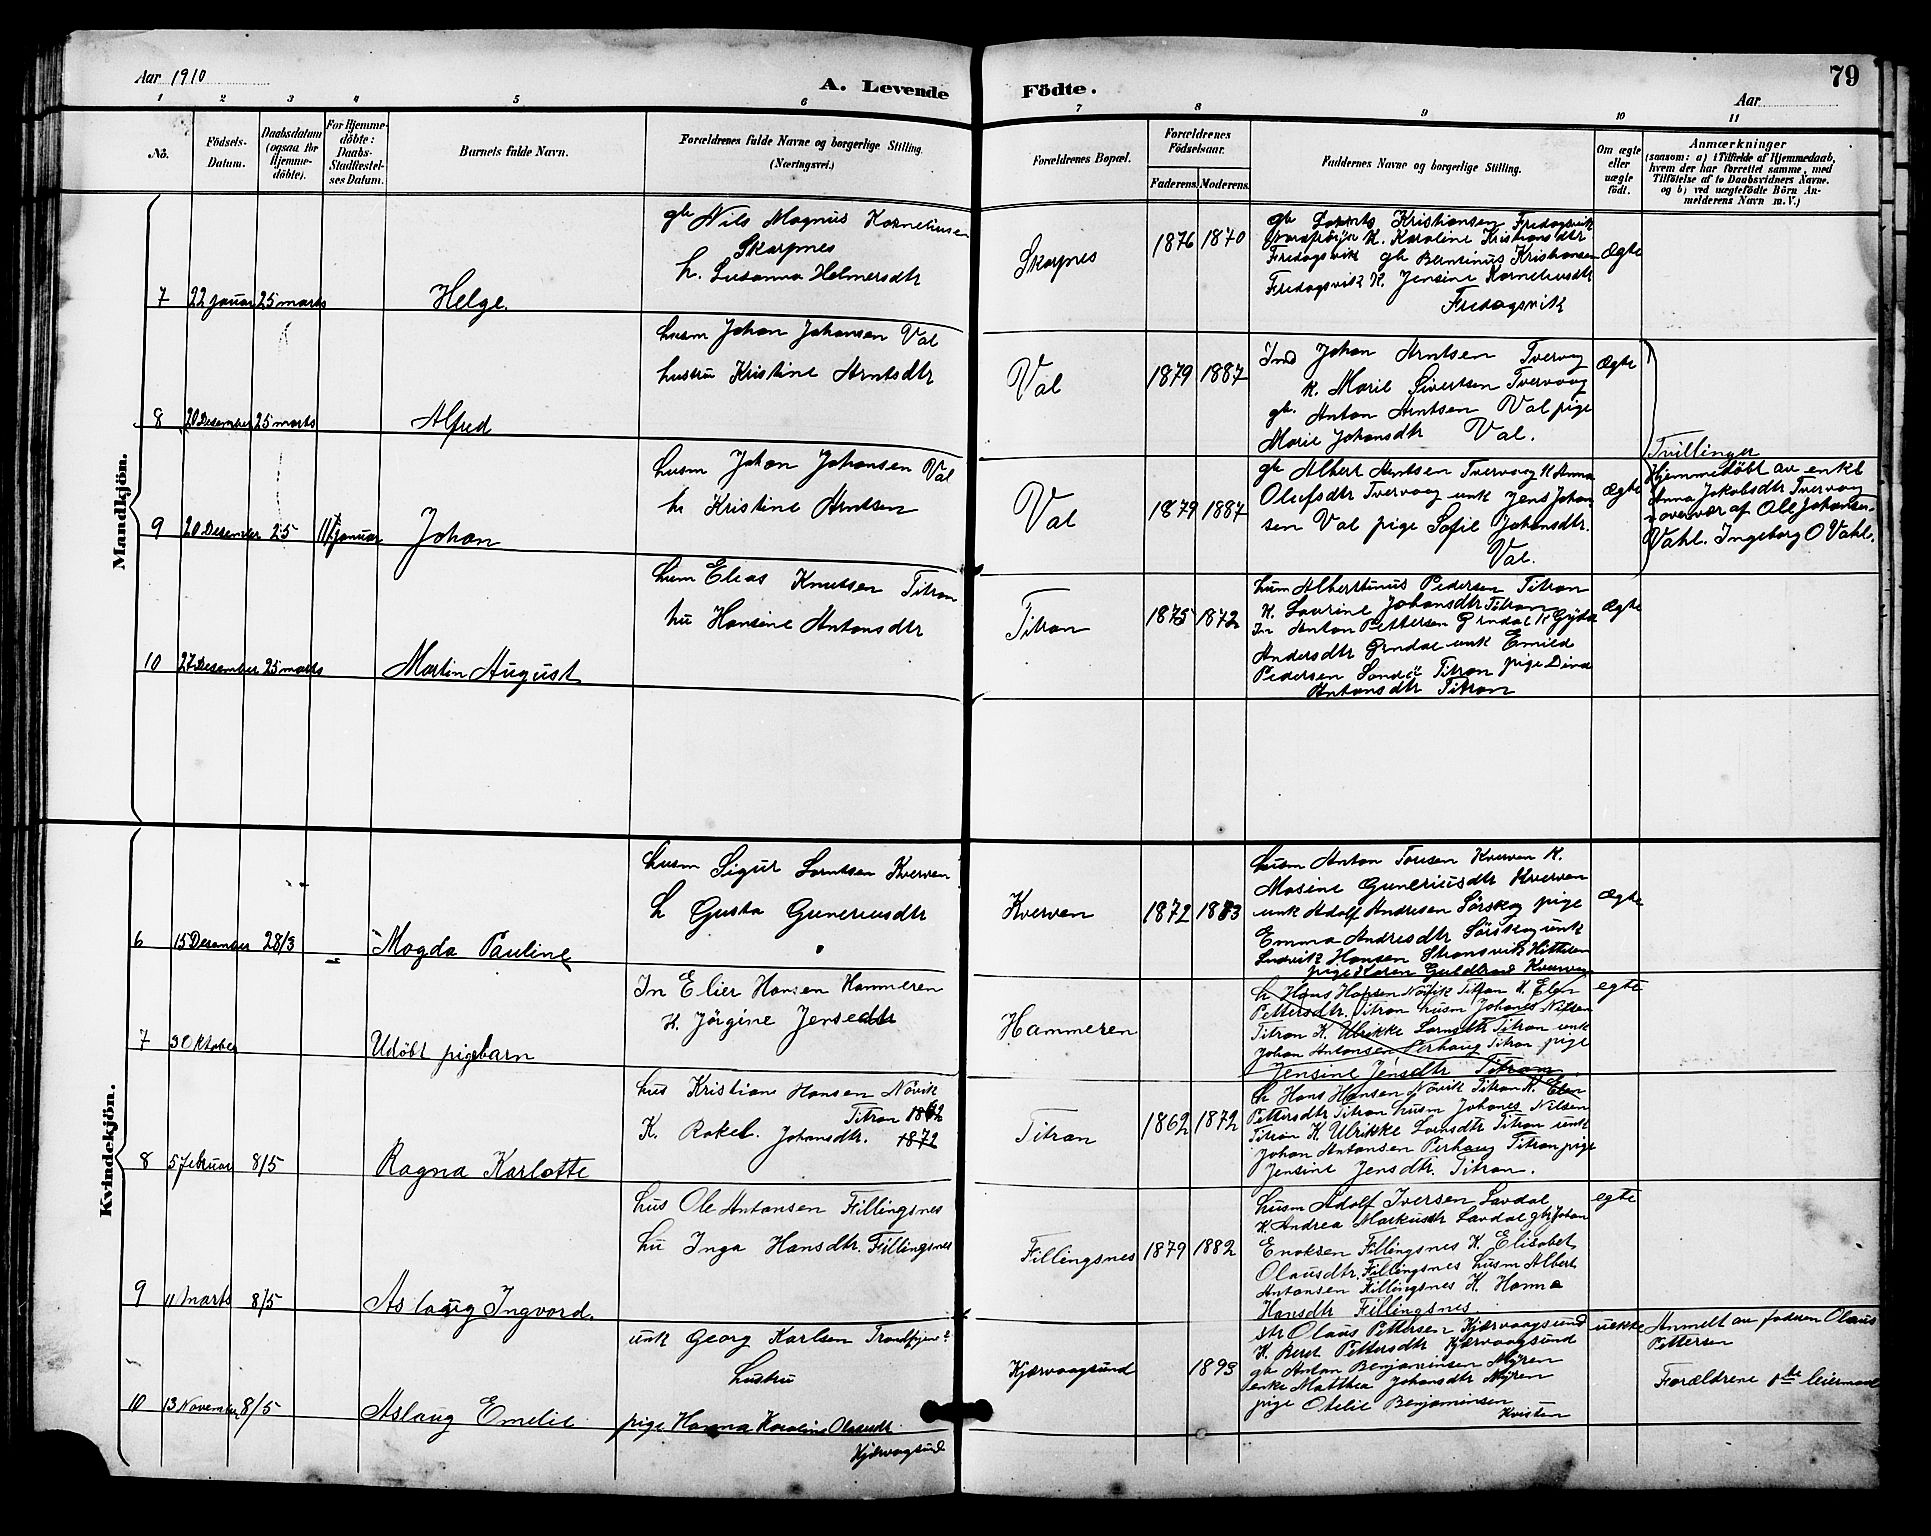 Aar 1910
A. Levende
Födte.
79
Aar
1 2 3 4 5 6 7 8 9 10 11
No.
Födsels-
Datum.
Daabsdatum
(ogsaa for
Hjemme-
döbte).
For Hjemme-
döbte:
Daabs-
Stadfæstel-
ses Datum.
Barnets fulde Navn.
Forældrenes fulde Navne og borgerlige Stilling.
(Næringsvei.)
Forældrenes Bopæl.
Forældrenes
Födselsaar.
Faderens. Moderens.
Faddernes Navne og borgerlige Stilling.
Om ægte
eller
uægte
födt.
Anmærkninger
(saasom: a) i Tilfælde af Hjemmedaab,
hvem der har forrettet samme, med
Tilföielse af to Daabsvidners Navne.
og b) ved uægtefödte Börn An-
melderens Navn m.V.)
Mandkjön.
7 22 januar 25 marts
Helge.
gb Nils Magnus Korneliusen
Skarpnes
h. Susanna Helmersdtr
Skarpnes
1876 1870
gb Lornts Kristiansen Fredagsvik
K. Karoline Kristiansdtr
Fredagsvik gb Berntinus Kristiansen
Fredagsvik K. Jensine Korneliusdtr
Fredagsvik
Ægte
8 20 Desember 25 marts
Alfred
husm Johan Johansen Val
hustru Kristine Arntsdtr
Val
1879 1887
Ind Johan Arntsen Tervog
K. Marie Sivertsen Tvervaag
gb. Anton Arntsen Val pige
Marie Johansdtr Val.
Ægte
9 20 Desember 25 11 januar
Johan
husm Johan Johansen Val
h. Kristine Arntsen
Val
1879 1887
gb Albert Arntsen Tvervaag K Anna
Olufsdtr Tvervaag unk Jens Johan-
sen Val pige Sofie Johansdtr.
Val.
Ægte
Tvillinger
Hjemmedöbt av enke
Anna Jakobsdtr Tvervog
i overvær af Ole Johansen
Vahl. Ingeborg O Vahl.
10 27 Desember 25 marts
Martin August
husm Elias Knutsen Titran
hu Hansine Antonsdtr
Titran
1875 1872
husm Albertinus Pedersen Titran
K. Laurine Johansdtr Titran
In Anton Pettersen Grndal K Gyda
Andersdtr Grndal unk Emild
Pedersen Sandö Titran pige Dina
Antonsdtr Titran
Ægte
Kvindekjön.
6 15 Desember 28/3
Magda Pauline
husm Sigur Lorntsen Kverven
h Gusta Guneriusdtr
Kverven
1872 1883
husm Anton Tonsen Kverven K.
Masine Guneriusdtr Kverven
unk Adolf Andresen Sörskag pige
Emma Andresdtr Sörskag unk
Ludvik Hansen Strømsvik Hitteren
pige Karen Guldtrad Kverven
Ægte
7 3 Oktober
Udöbt pigebarn
In Elier Hansen Hammeren
K. Jörgine Jensedtr
Hammeren
h Hans Hansen Növik Titran K. Elen
Pettersdtr. Titran husm Johanes Nilsen
Titran K. Ulrikke Lornsdtr Titran unk
Johan Antonsen Perhaug Titran pige
Jensine Jensdtr Titran
egte
8 5 Februar 8/5
Ragna Karlotte
hus Kristian Hansen Növik
Titran 1862
K. Rakel. Johansdtr. 1872
Titran
1862 1872
h Hans Hansen Növik Titran K. Elen
Pettersdtr Titran husm Johanes Nilsen
Titran K. Ulrikke Lornsdtr Titran unk
Johan Antonsen Perhaug Titran pige
Jensine Jensdtr. Titran.
9 11 marts 8/5
Aslaug Ingvord.
hus Ole Antonsen Fillingsnes
hu Inga Hansdtr. Fillingsnes
Fillingsnes
1879 1882
husm Adolf Iversen Lavdal
K Andrea Markusdtr Lavdal gb Johan
Enoksen Fillingsnes K. Elisabet
Olausdtr. Fillingsnes husm Albert
Antonsen Fillingsnes K. Hanna
Hansdtr Fillingsnes.
egte
10 13 November 8/5
Aslaug Emelie
unk Georg Karlsen
hustru
pige Hanna Karoline Olausdtr.
Kjærvaagsund
Kjærvaagsund
1893
str Olaus Pettersen Kjærvaagsund
K. Beret Pettersdtr Kjærvaagsund
gb Anton Benjaminsen Myren
enke Matthea Johansdtr Myren
pige Otelie Benjaminsen
Kvisten
uekte
Anmelt av faderen Olaus
Pettersen
Forældrene 1ste leiermaal